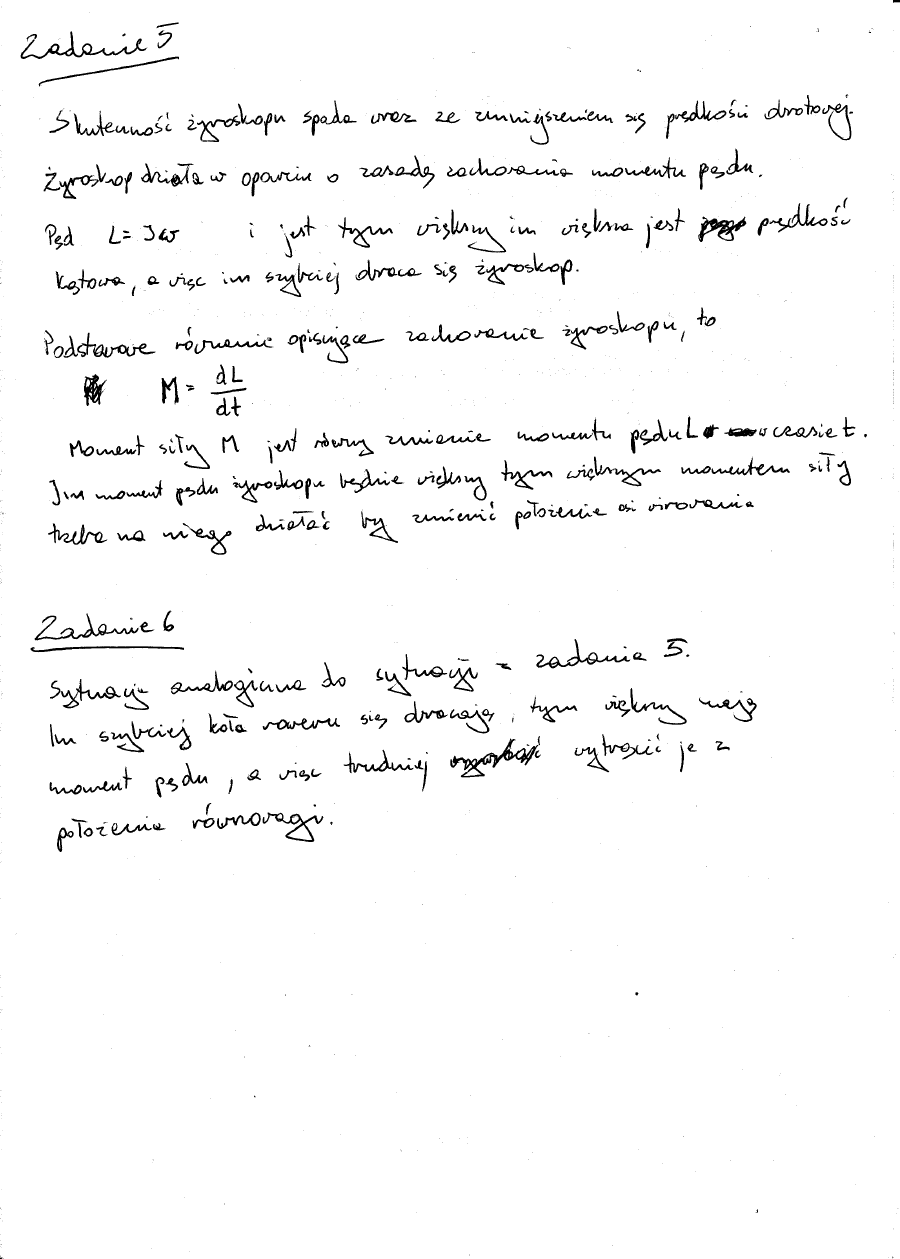 Zadanie 5
Skuteczność żyroskopu spada wraz ze zmniejszeniem się prędkości obrotowej.
Żyroskop działa w oparciu o zasadę zachowania momentu pędu.
Pęd L = Jω i jest tym większy im większa jest prędkość
kątowa, a więc im szybciej obraca się żyroskop.
Podstawowe równanie opisujące zachowanie żyroskopu, to
M = dL/dt
Moment siły M jest równy zmianie momentu pędu L w czasie t.
Im moment pędu żyroskopu będzie większy tym większym momentem siły
trzeba na niego działać by zmienić położenie osi wirowania
Zadanie 6
Sytuacja analogiczna do sytuacji z zadania 5.
Im szybciej koła roweru się obracają, tym większy mają
moment pędu, a więc trudniej wytrącić je z
położenia równowagi.